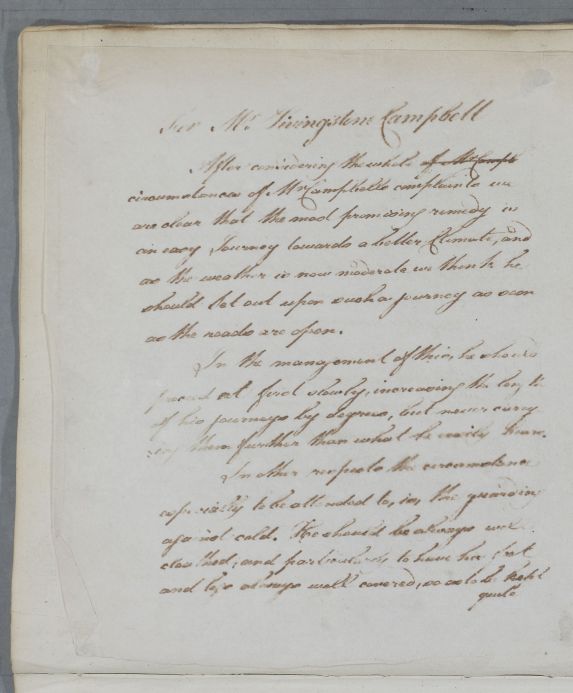 For Mr. Livingston Campbell
After considering the whole of Mr Campb
circumstances of Mr Campbells complaints we
are clear that the most promising remedy is
an easy Journey towards a better Climate, and
as the weather is now moderate we think he
should set out upon such a journey as soon
as the roads are open.
In the management of this, he should
proceed at first slowly, increasing the length
of his journeys by degrees, but never carry
ing them further than what he easily bears.
In other respects the circumstance
especially to be attended to, is, the guarding
against cold. He should be always well
cloathed, and particularly to have his feet
and legs always well covered, so as to be kept
quite